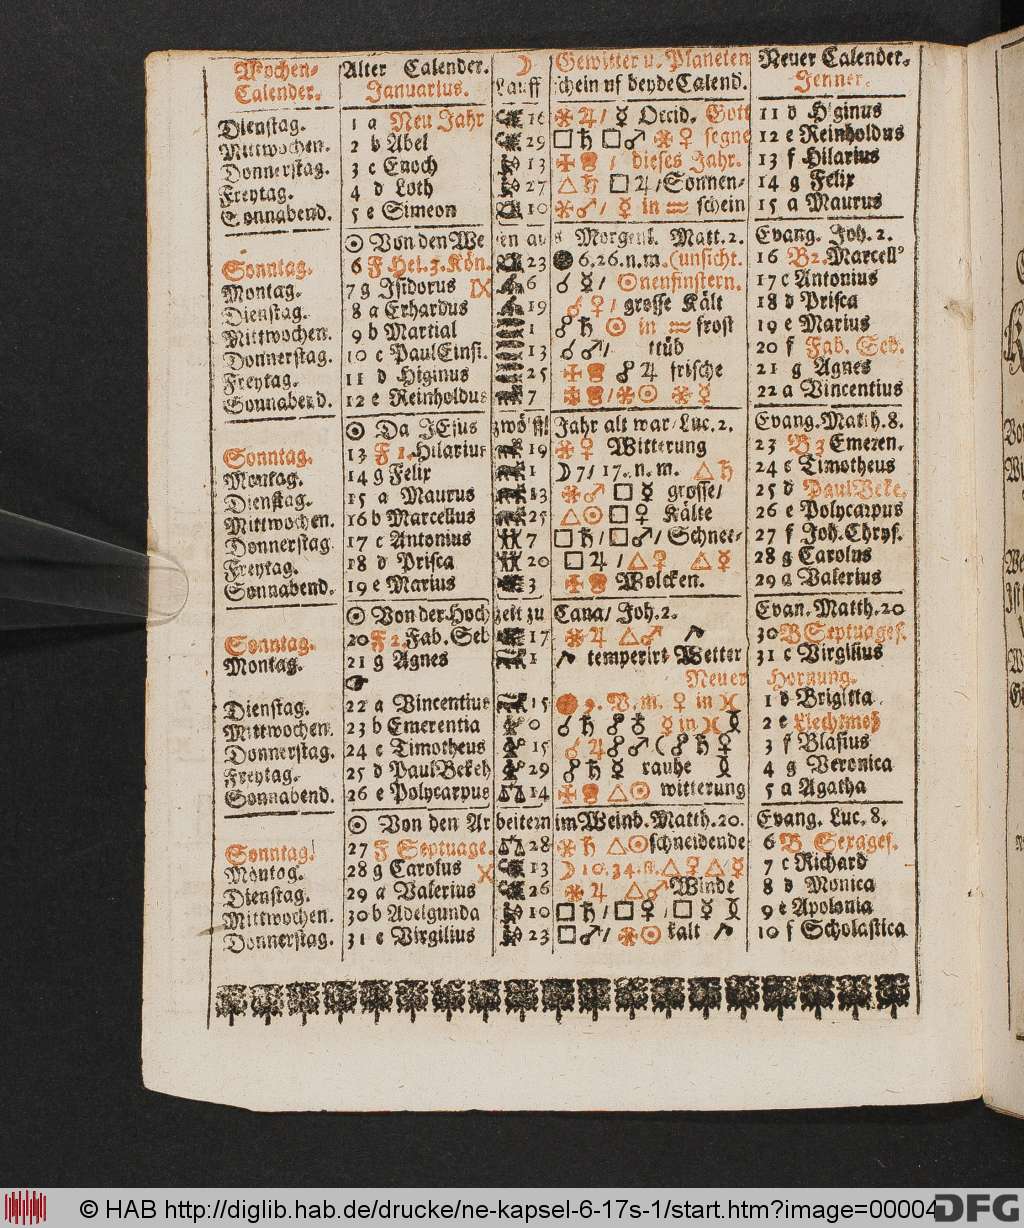 Wochen- Alter Calender. ☽ Gewitter u. Planeten Neuer Calender.
Calender. Januarius. Lauff schein uf beyde Calend. Jenner.
Dienstag. 1 a Neu Jahr 16 ⚹ ♃ / ☿ Occid. Gott 11 d Higinus
Mittwochen. 2 b Abel 29 □ ♄ □ ♂ ⚹ ♀ segne 12 e Reinholdus
Donnerstag. 3 c Enoch 13 / dieses Jahr. 13 f Hilarius
Freytag. 4 d Loth 27 △ ♄ □ ♃ / Sonnen- 14 g Felix
Sonnabend. 5 e Simeon 10 ⚹ ♂ / ☿ in ♒ schein 15 a Maurus
☉ Von den Weisen aus Morgenl. Matt. 2. Evang. Joh. 2.
Sonntag. 6 F Hel. 3. Kön. 23 6. 26. n. m. (unsicht. 16 B 2. Marcell'
Montag. 7 g Isidorus IX 6 ☌ ☿ / ☉nenfinstern. 17 c Antonius
Dienstag. 8 a Erhardus 19 ☌ ♀ / grosse Kält 18 d Prisca
Mittwochen. 9 b Martial 1 ☍ ♄ ☉ in ♒ frost 19 e Marius
Donnerstag. 10 c Paul Einsi. 13 ☌ ♂ / trüb 20 f Fab. Seb.
Freytag. 11 d Higinus 25 ☍ ♃ frische 21 g Agnes
Sonnabend. 12 e Reinholdus 7 / ⚹ ☉ ⚹ ☿ 22 a Vincentius
☉ Da JEsus zwölff Jahr alt war / Luc. 2. Evang. Matth. 8.
Sonntag. 13 F 1. Hilarius 19 ⚹ ♀ Witterung 23 B 3 Emeren.
Montag. 14 g Felix 1 ☽ 7 / 17. n. m. △ ♄ 24 c Timotheus
Dienstag. 15 a Maurus 13 ⚹ ♂ □ ☿ grosse / 25 d Paul Beke.
Mittwochen. 16 b Marcellus 25 △ ☉ □ ♀ Kälte 26 e Polycarpus
Donnerstag. 17 c Antonius 7 □ ♄ / □ ♂ / Schnee- 27 f Joh. Chrys.
Freytag. 18 d Prisca 20 □ ♃ / △ ♀ △ ☿ 28 g Carolus
Sonnabend. 19 e Marius 3 Wolcken. 29 a Valerius
☉ Von der Hochzeit zu Cana / Joh. 2. Evan. Matth. 20
Sonntag. 20 F 2. Fab. Seb 17 ⚹ ♃ △ ♂ 30 B Septuages.
Montag. 21 g Agnes 1 temperirt Wetter 31 c Virgilius
☛ Neuer Hornung.
Dienstag. 22 a Vincentius 15 9. V. m. ♀ in ♓ 1 d Brigitta
Mittwochen. 23 b Emerentia 0 ☌ ♄ ☍ ♄ ☿ in ♓ 2 e Liechtmeß
Donnerstag. 24 c Timotheus 15 ☌ ♃ ☍ ♂ ( ☍ ♄ ♀ 3 f Blasius
Freytag. 25 d Paul Bekeh 29 ☍ ♄ ☿ rauhe 4 g Veronica
Sonnabend. 26 e Polycarpus ♎ 14 △ ☉ witterung 5 a Agatha
☉ Von den Arbeitern im Weinb. Matth. 20. Evang. Luc. 8.
Sonntag. 27 F Septuage. ♎ 28 ⚹ ♄ △ ☉ schneidende 6 B Sexages.
Montag. 28 g Carolus X 13 ☽ 10. 34. n. △ ♀ △ ☿ 7 c Richard
Dienstag. 29 a Valerius 26 ⚹ ♃ △ ♂ Winde 8 d Monica
Mittwochen. 30 b Adelgunda 10 □ ♄ / □ ♀ / □ ☿ 9 e Apolonia
Donnerstag. 31 c Virgilius 23 □ ♂ / ⚹ ☉ kalt 10 f Scholastica
© HAB http://diglib.hab.de/drucke/ne-kapsel-6-17s-1/start.htm?image=00004
DFG